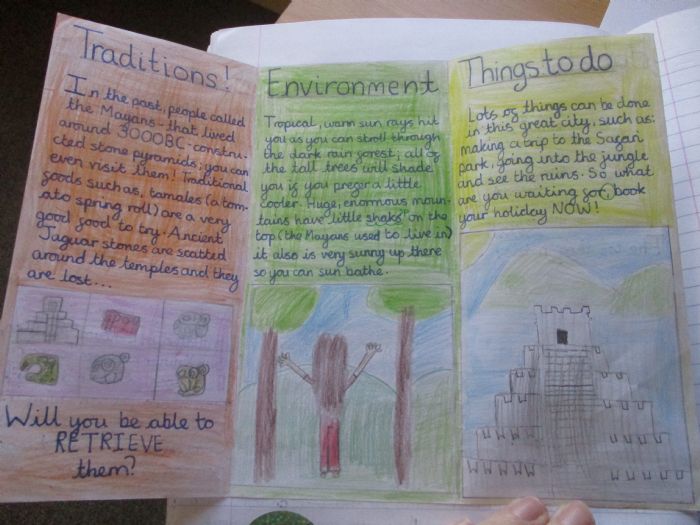 Traditions!
In the past, people called
the Mayans - that lived
around 3000BC - constru-
cted stone pyramids; you can
even visit them! Traditional
foods such as, tamales (a tom-
ato spring roll) are a very
good food to try. Ancient
Jaguar stones are scatted
around the temples and they
are lost...
Will you be able to
RETRIEVE
them?
Environment
Tropical, warm sun rays hit
you as you can stroll through
the dark rain forest; all of
the tall trees will shade
you if you prefer a little
cooler. Huge, enormous moun-
tains have little shaks on the
top (the Mayans used to live in)
it also is very sunny up there
so you can sun bathe.
Things to do
Lots of things can be done
in this great city, such as:
making a trip to the Safari
park, going into the jungle
and see the ruins. So what
are you waiting for, book
your holiday NOW!